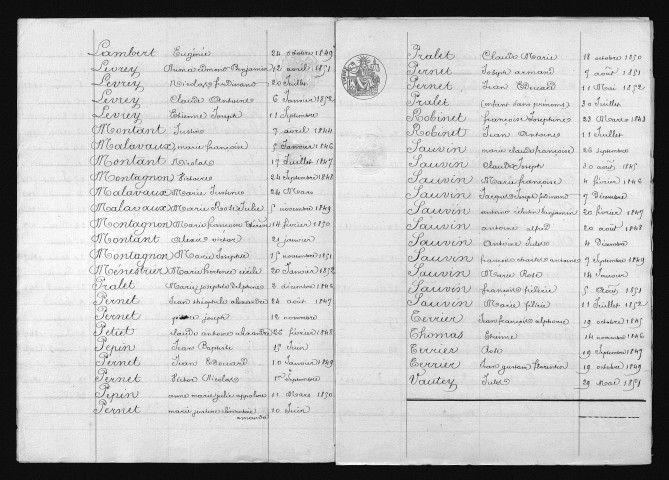 Lambert Eugénie 24 octobre 1849
Levrey Anna Edmond Benjamin 12 avril 1851
Levrey Nicolas ferdinand 20 Juillet
Levrey Claude Antoine 6 Janvier 1852
Levrey Etienne Joseph 11 Septembre
Montant Justin 7 avril 1844
Malavaux marie françoise 5 Janvier 1846
Montant Nicolas 17 Juillet 1847
Montagnon 24 Septembre 1848
Malavaux Marie Justine 24 Mars
Malavaux Marie Rose Julie 5 novembre 1849
Montagnon Marie françoise 14 février 1850
Montant Alexis victor 21 janvier
Montagnon Marie Josephte 25 novembre 1851
Menestrier Marie hortence cécile 20 Janvier 1852
Pralet Marie josephte Delphine 8 décembre 1846
Pernet Jean théophile alexandre 24 août 1847
Pernet pierre joseph 18 novembre
Petiet claude antoine alexandre 26 février 1848
Pepin Jean Baptiste 15 Juin
Pernet Jean Edouard 10 Janvier 1849
Pernet Victor Nicolas 1er Septembre
Pepin anne marie julie appoline 11 Mars 1850
Pernet marie justine clementine amanda 10 Juin
Pralet Claude Marie 18 octobre 1850
Pernet Joseph armand 9 août 1851
Pernet Jean Edouard 11 Mai 1852
Pralet (enfant sans prénoms) 30 Juillet
Robinet françoise Josephine 23 Mars 1843
Robinet Jean Antoine 11 Juillet
Sauvin marie claude françoise 26 septembre
Sauvin Claude Joseph 30 août 1845
Sauvin Marie françoise 4 février 1846
Sauvin Jacques Joseph 7 Décembre
Sauvin antoine célestin benjamin 20 février 1847
Sauvin antoine alfred 20 août 1848
Sauvin Antoine Jules 4 Décembre
Sauvin francois charles antoine 7 Septembre 1849
Sauvin Marie Rose 14 Janvier
Sauvin francois 5 août 1851
Sauvin Marie 11 Juillet 1852
Terrier Jean françois alphonse 19 octobre 1845
Thomas Etienne 14 novembre 1846
Terrier Rose 19 Septembre 1849
Terrier Jean gustave florentin 19 octobre 1849
Vautey Jules 29 Mai 1851